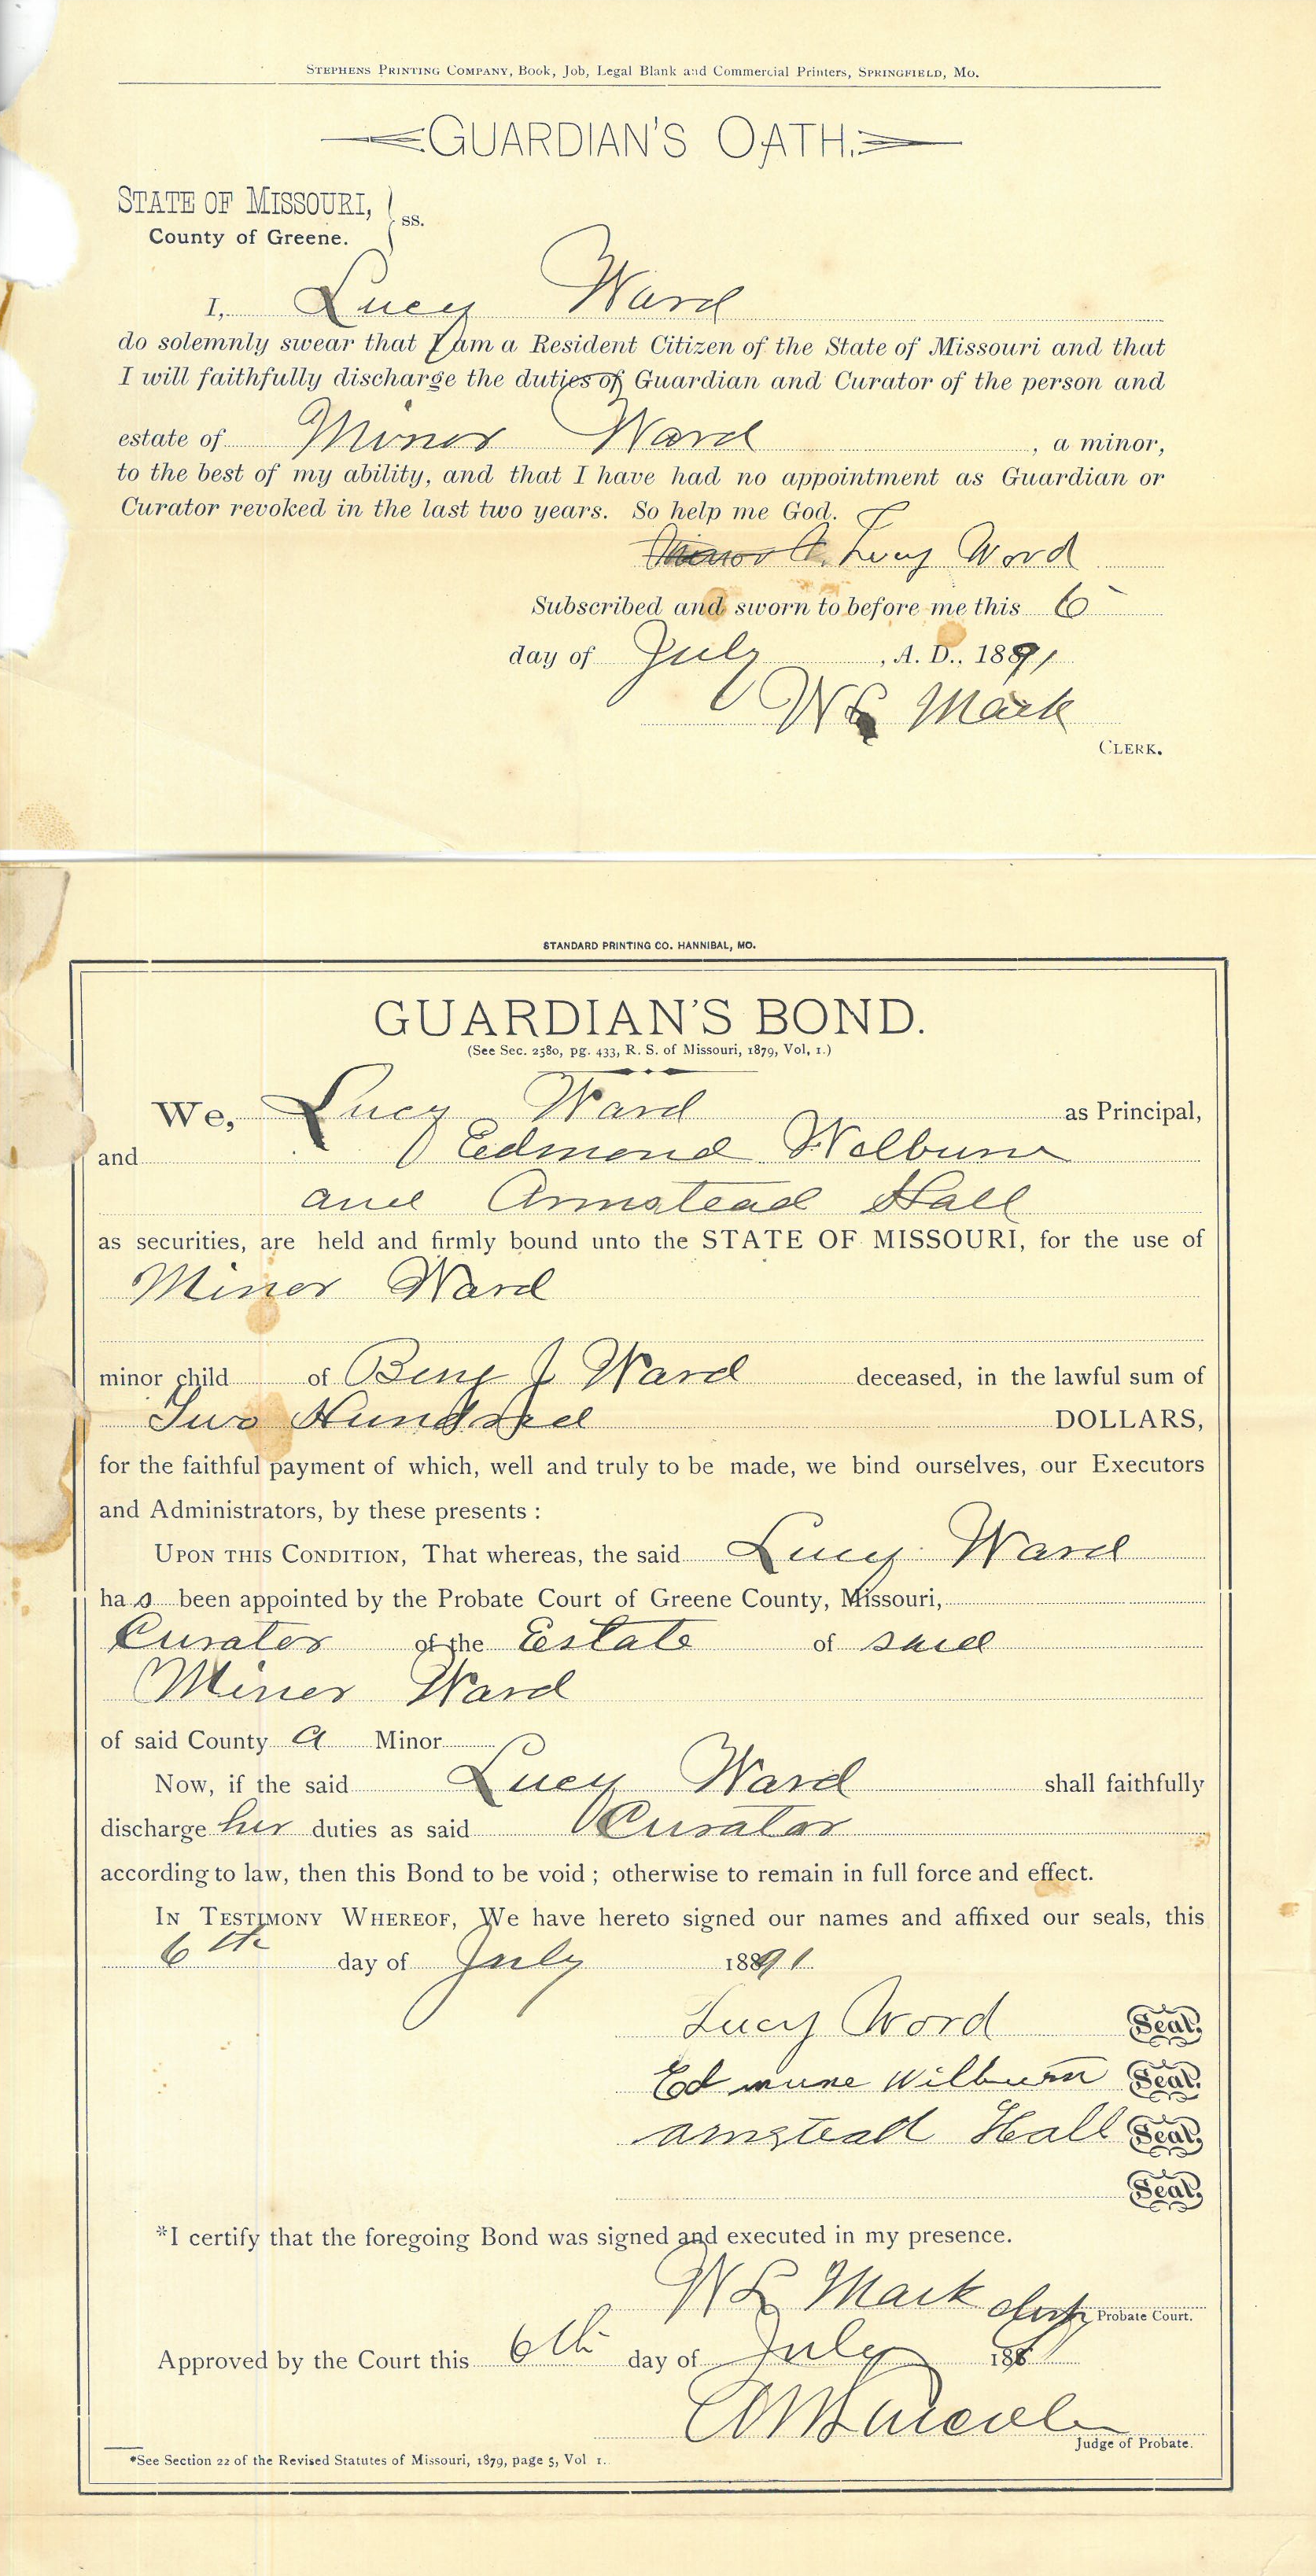 STEPHENS PRINTING COMPANY, Book, Job, Legal Blank and Commercial Printers, SPRINGFIELD, MO.
GUARDIAN'S OATH.
STATE OF MISSOURI,
County of Greene. } ss.
I, Lucy Ward
do solemnly swear that I am a Resident Citizen of the State of Missouri and that
I will faithfully discharge the duties of Guardian and Curator of the person and
estate of Minor Ward, a minor,
to the best of my ability, and that I have had no appointment as Guardian or
Curator revoked in the last two years. So help me God.
Lucy Word
Subscribed and sworn to before me this 6
day of July, A. D., 1891
W L Mack
CLERK.
STANDARD PRINTING CO. HANNIBAL, MO.
GUARDIAN'S BOND.
(See Sec. 2580, pg. 433, R. S. of Missouri, 1879, Vol, 1.)
We, Lucy Ward as Principal,
and Edmond Welburn
and Armstead Hall
as securities, are held and firmly bound unto the STATE OF MISSOURI, for the use of
Minor Ward
minor child of Benj J Ward deceased, in the lawful sum of
Two Hundred DOLLARS,
for the faithful payment of which, well and truly to be made, we bind ourselves, our Executors
and Administrators, by these presents :
UPON THIS CONDITION, That whereas, the said Lucy Ward
has been appointed by the Probate Court of Greene County, Missouri,
Curator of the Estate of said
Minor Ward
of said County a Minor
Now, if the said Lucy Ward shall faithfully
discharge her duties as said Curator
according to law, then this Bond to be void ; otherwise to remain in full force and effect.
IN TESTIMONY WHEREOF, We have hereto signed our names and affixed our seals, this
6th day of July 1891
Lucy Word Seal.
Edmune Wilburn Seal.
Amstead Hall Seal.
Seal.
*I certify that the foregoing Bond was signed and executed in my presence.
W L Mack Clerk Probate Court.
Approved by the Court this 6th day of July 1891
Judge of Probate.
*See Section 22 of the Revised Statutes of Missouri, 1879, page 5, Vol 1.